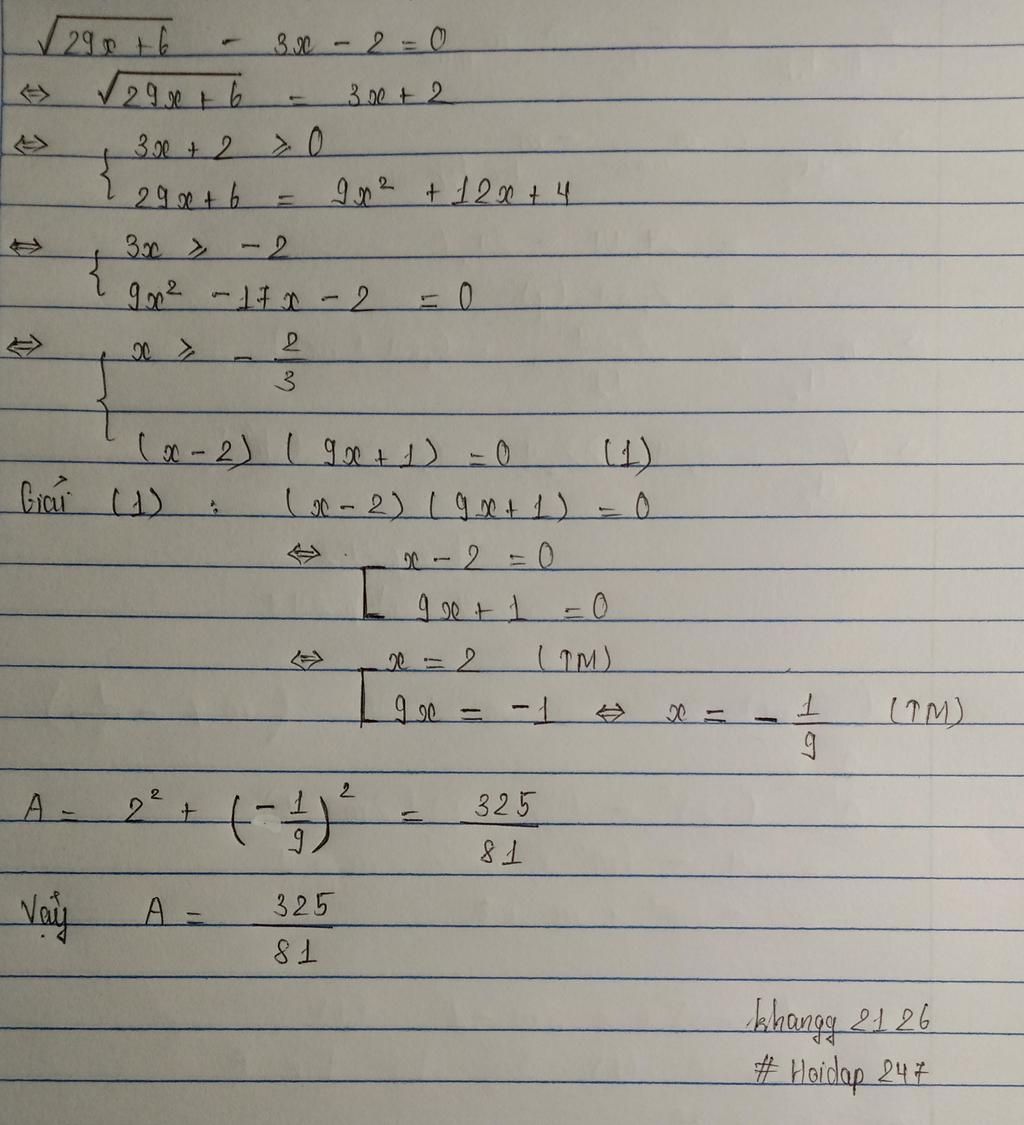 √(29x + 6) - 3x - 2 = 0
⇔ √(29x + 6) = 3x + 2
⇔ { 3x + 2 ⩾ 0
29x + 6 = 9x² + 12x + 4
⇔ { 3x ⩾ - 2
9x² - 17x - 2 = 0
⇔ { x ⩾ - 2/3
(x - 2) (9x + 1) = 0 (1)
Giải (1) : (x - 2) (9x + 1) = 0
⇔ [ x - 2 = 0
9x + 1 = 0
⇔ [ x = 2 (TM)
9x = -1 ⇔ x = - 1/9 (TM)
A = 2² + (- 1/9)² = 325/81
Vậy A = 325/81
khangg 2126
# Hoidap 247